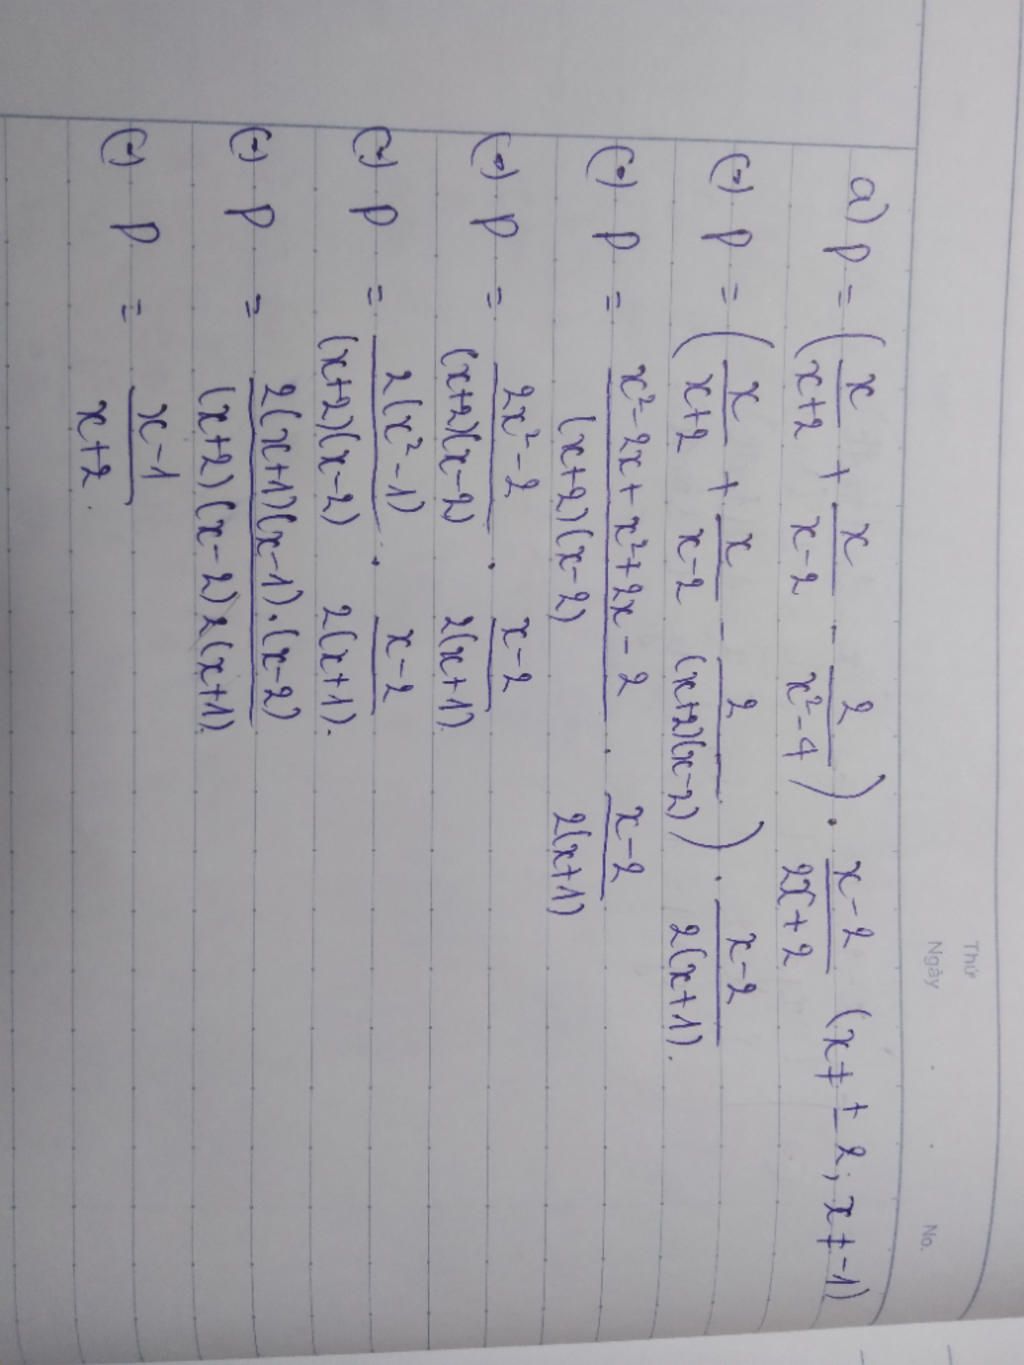 Thứ
Ngày . . No.
a) P = (x/(x+2) + x/(x-2) - 2/(x²-4)) . (x-2)/(2x+2) (x ≠ ±2; x ≠ -1)
(=) P = (x/(x+2) + x/(x-2) - 2/((x+2)(x-2))) . (x-2)/(2(x+1)).
(=) P = (x²-2x+x²+2x-2)/((x+2)(x-2)) . (x-2)/(2(x+1))
(=) P = (2x²-2)/((x+2)(x-2)) . (x-2)/(2(x+1)).
(=) P = (2(x²-1))/((x+2)(x-2)) . (x-2)/(2(x+1)).
(=) P = (2(x+1)(x-1).(x-2))/((x+2)(x-2)2(x+1)).
(=) P = (x-1)/(x+2).